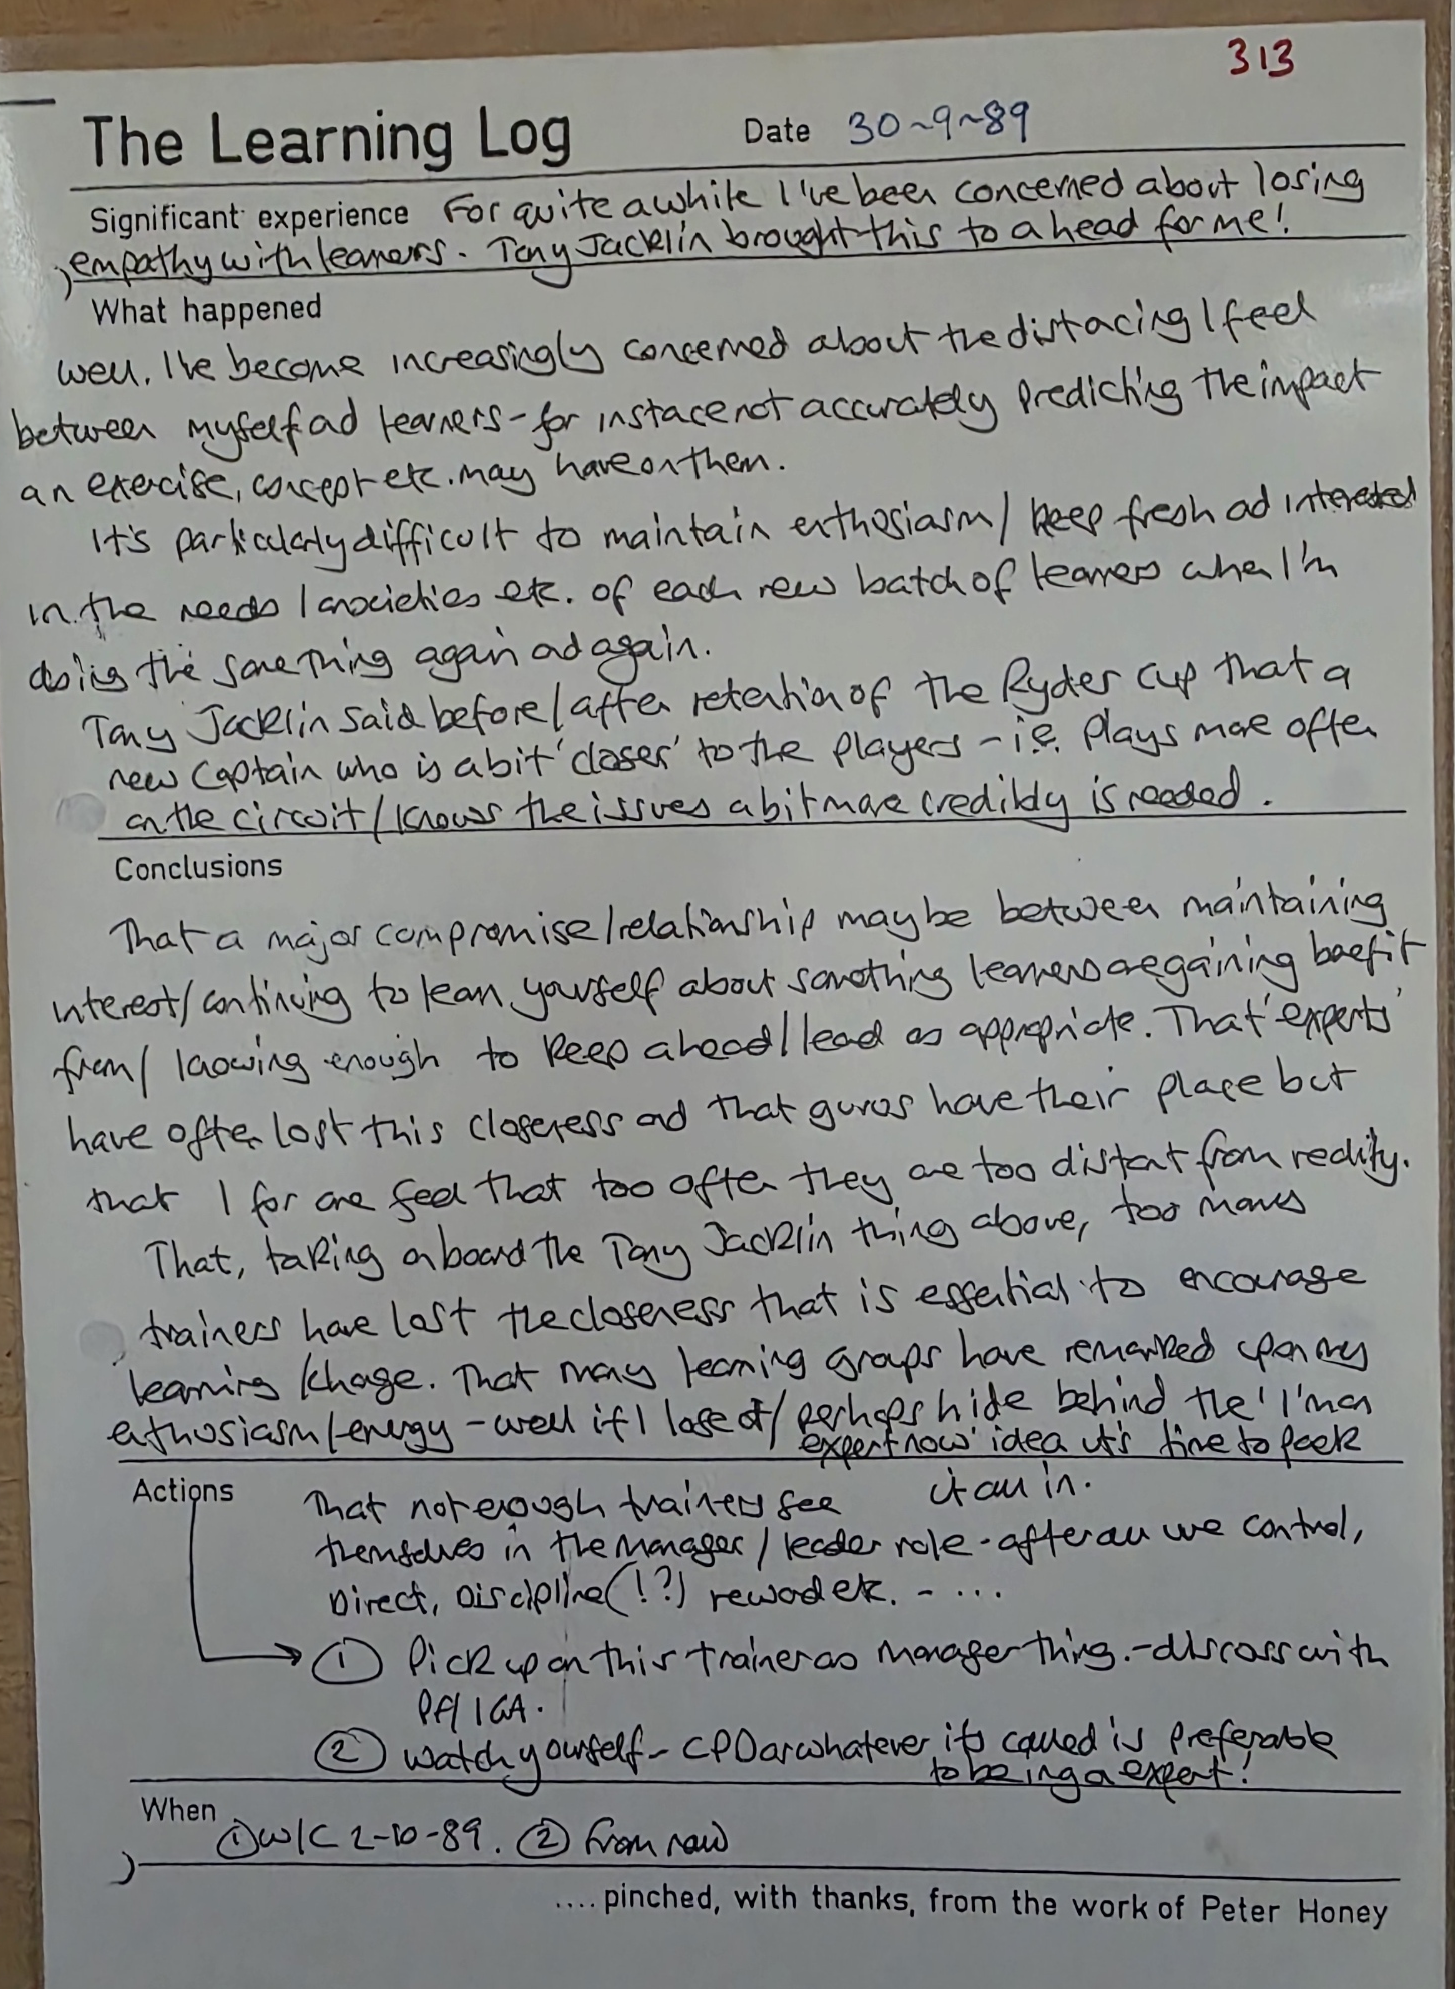 313
The Learning Log Date 30~9~89
Significant experience For quite a while I've been concerned about losing
empathy with learners. Tony Jacklin brought this to a head for me!
What happened
Well, I've become increasingly concerned about the distacing I feel
between myself ad learners - for instace not accurately predicting the impact
an exercise, concept etc. may have on them.
It's particularly difficult to maintain enthusiasm / keep fresh ad interested
in the needs / anxieties etc. of each new batch of learners when I'm
doing the same thing again ad again.
Tony Jacklin said before / after retention of the Ryder Cup that a
new captain who is a bit 'closer' to the players - i.e. plays more often
on the circuit / knows the issues a bit more credibly is needed.
Conclusions
That a major compromise / relationship may be between maintaining
interest / continuing to learn yourself about something learners are gaining benefit
from / knowing enough to keep ahead / lead as appropriate. That 'experts'
have often lost this closeness ad that gurus have their place but
that I for one feel that too often they are too distant from reality.
That, taking on board the Tony Jacklin thing above, too many
trainers have lost the closeness that is essential to encourage
learning / change. That many learning groups have remarked upon my
enthusiasm / energy - well if I lose it / perhaps hide behind the 'I'm an
expert now' idea it's time to pack
it all in.
Actions That not enough trainers see
themselves in the manager / leader role - after all we control,
Direct, Discipline (!?) reward etc. - ...
① Pick up on this trainer as manager thing. - discuss with
PF/IGA.
② Watch yourself - CPD or whatever it's called is preferable
to being a expert!
When ① W/C 2-10-89. ② From now
.... pinched, with thanks, from the work of Peter Honey